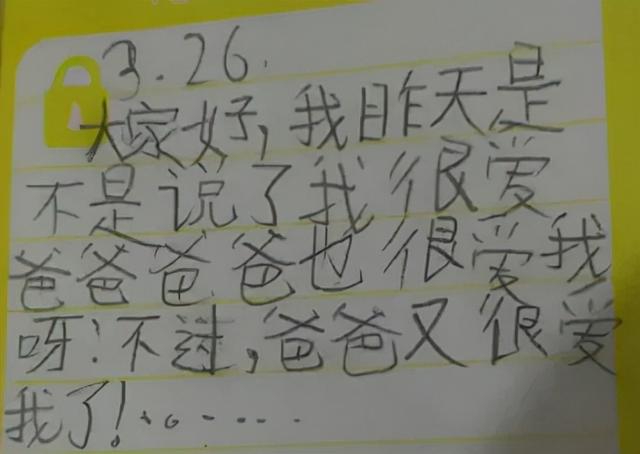 3.26.
大家好,我昨天是
不是说了我很爱
爸爸爸爸也很爱我
呀!不过,爸爸又很爱
我了!……